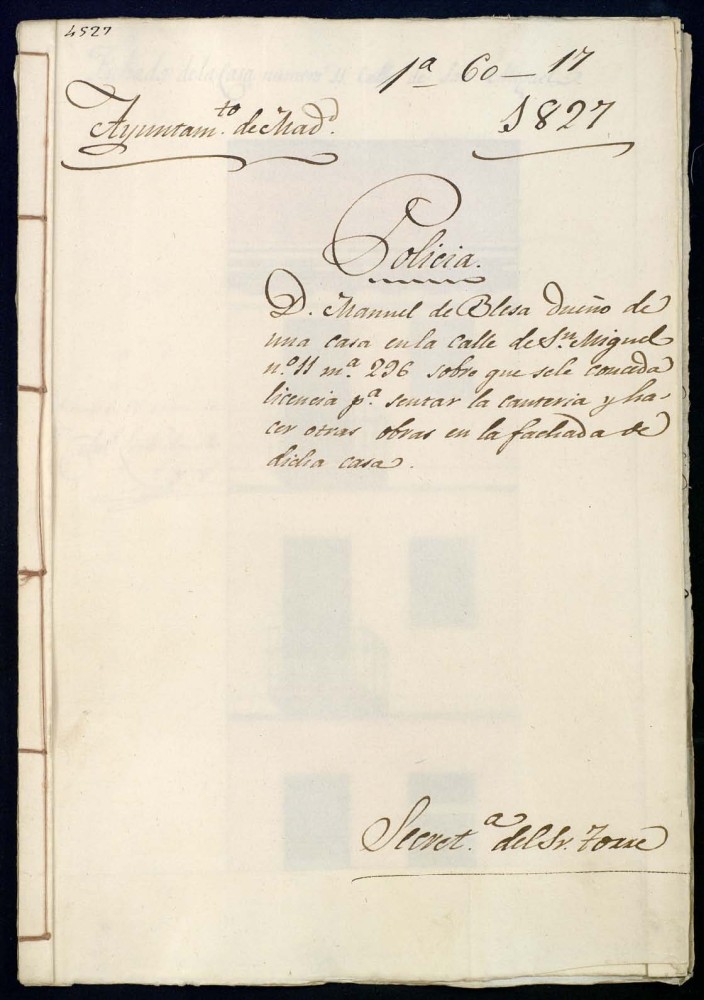 4527
1ª 60-17
Ayuntam.to de Mad.d
1827
Policia.
D. Manuel de Blesa Dueño de
una casa en la calle de S.n Miguel
n.º 11 m.ª 296 sobre que sele conceda
licencia p.ª sentar la canteria y ha-
cer otras obras en la fachada de
dicha casa.
Secret.ª del Sr. Torre